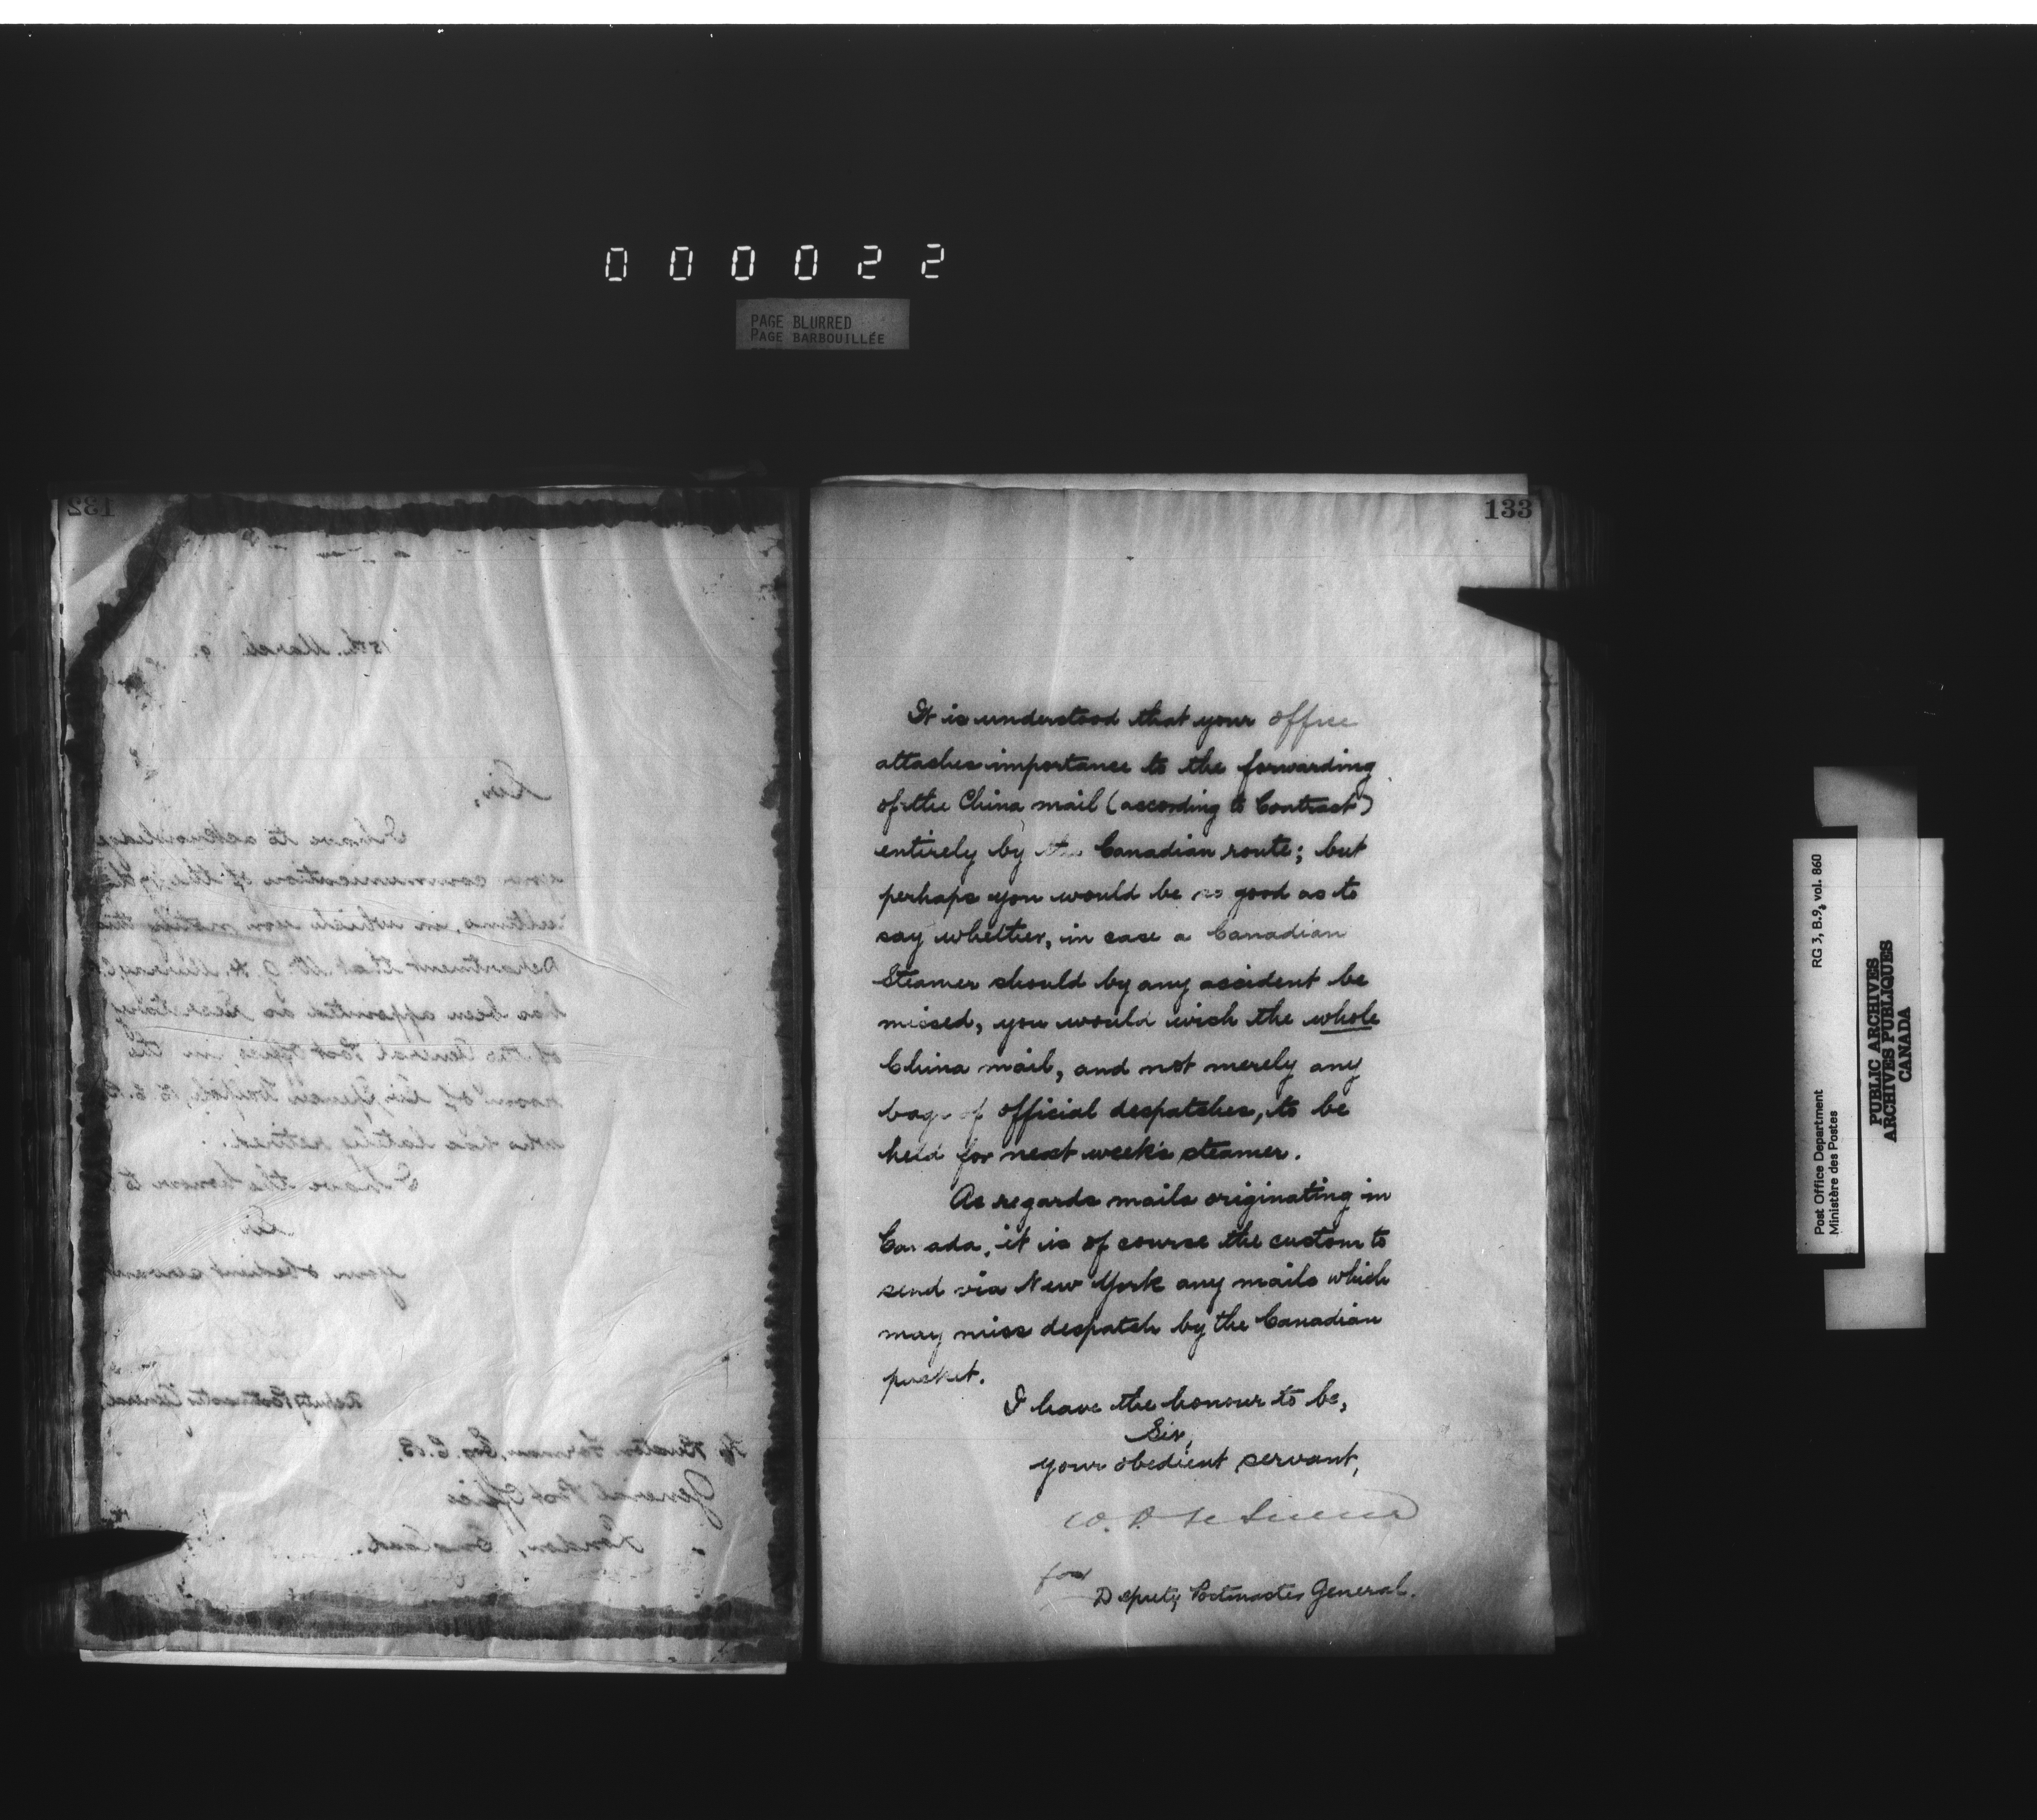 000022
PAGE BLURRED
PAGE BARBOUILLÉE
132
15th. March 9.
Sir,
I have to acknowledge
your communication of the 17th
ultimo, in which you notify this
Department that Mr. G. H. Murray, C.B.
has been appointed as Secretary
of the General Post Office, in the
room of Sir Spencer Walpole, K.C.B.
who has lately retired.
I have the honour to be
Sir,
your obedient servant
Deputy Postmaster General
H. Buxton Forman, Esq. C.B.
General Post Office
London, England.
133
It is understood that your office
attaches importance to the forwarding
of the China mail (according to Contract)
entirely by the Canadian route; but
perhaps you would be so good as to
say whether, in case a Canadian
Steamer should by any accident be
missed, you would wish the whole
China mail, and not merely any
bags of official despatches, to be
held for next week's steamer.
As regards mails originating in
Canada, it is of course the custom to
send via New York any mails which
may miss despatch by the Canadian
packet.
I have the honour to be,
Sir,
your obedient servant,
W. D. LeSueur
for
Deputy Postmaster General.
Post Office Department
Ministère des Postes
RG 3, B.9, vol. 860
PUBLIC ARCHIVES
ARCHIVES PUBLIQUES
CANADA